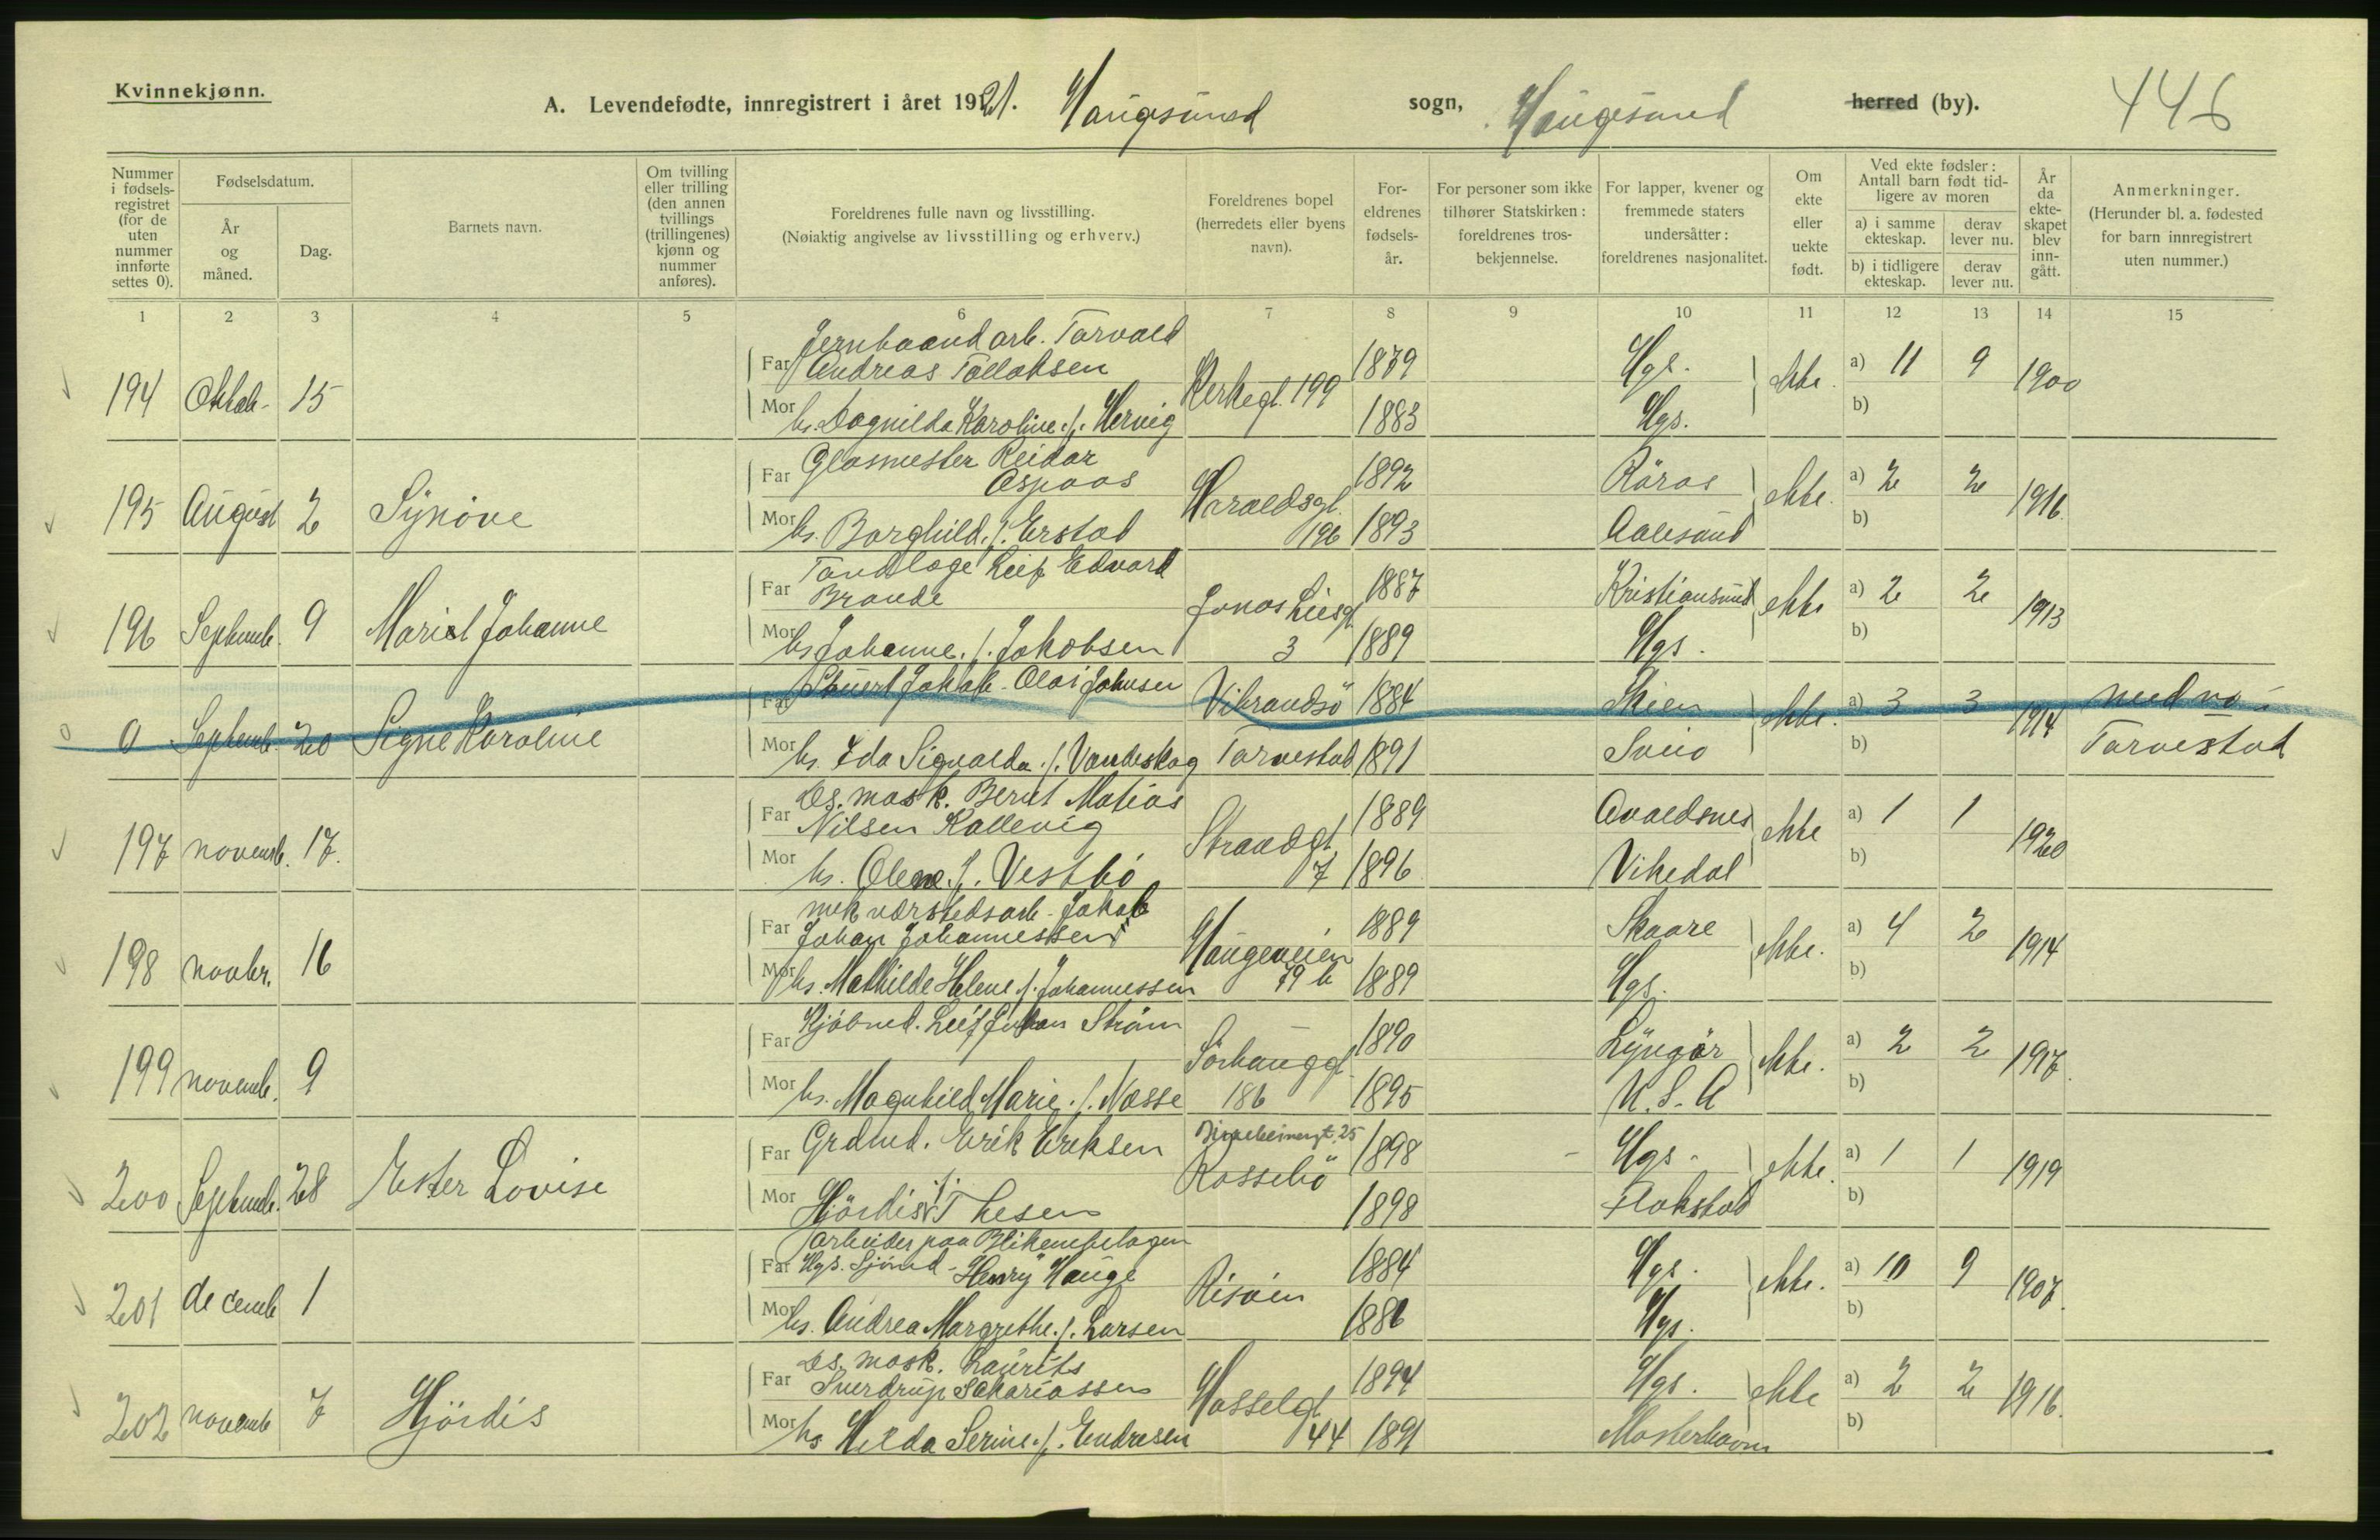 Kvinnekjønn.
A. Levendefødte, innregistrert i året 1921. Haugesund sogn, Haugesund herred (by). 446
Nummer i fødsels-registret (for de uten nummer innførte settes 0).
Fødselsdatum.
År og måned.
Dag.
Barnets navn.
Om tvilling eller trilling (den annen tvillings (trillingenes) kjønn og nummer anføres).
Foreldrenes fulle navn og livsstilling.
(Nøiaktig angivelse av livsstilling og erhverv.)
Foreldrenes bopel (herredets eller byens navn).
For-eldrenes fødsels-år.
For personer som ikke tilhører Statskirken: foreldrenes tros-bekjennelse.
For lapper, kvener og fremmede staters undersåtter: foreldrenes nasjonalitet.
Om ekte eller uekte født.
Ved ekte fødsler: Antall barn født tid-ligere av moren
a) i samme ekteskap.
derav lever nu.
b) i tidligere ekteskap.
derav lever nu.
År da ekte-skapet blev inn-gått.
Anmerkninger.
(Herunder bl. a. fødested for barn innregistrert uten nummer.)
1 2 3 4 5 6 7 8 9 10 11 12 13 14 15
194 Oktob. 15
Far Jernbaand arb. Torvald Andreas Tollaksen Kirkegt. 199 1879 Hgs. ekte. a) 11 9 1900
Mor hs. Dagnilda Karoline f. Hervig 1883 Hgs. b)
195 August 2 Synöve
Far Glasmester Reidar Aspaas Haraldsgt. 196 1892 Röros ekte. a) 2 2 1916.
Mor hs. Borghild f. Erstad 1893 Aalesund b)
196 Septemb. 9 Mariel Johanne
Far Tandlæge Leif Edvard Brande Jonas Liesgt 3 1887 Kristiansund ekte a) 2 2 1913
Mor hs Johanne f. Jakobsen 1889 Hgs. b)
0 Septemb. 20 Signe Karoline
Far Stuert Jakob Olai Johnsen Vibrandsö 1884 Skien ekte. a) 3 3 1914 med no i
Mor hs. Ida Sigvalda f. Vandeskog Torvestad 1891 Sveio b) Torvestad
197 novemb. 17.
Far Ds. mask. Bernt Matias Nilsen Kallevig Strandgt 7 1889 Avaldsnes ekte a) 1 1 1920
Mor hs. Olene f. Vestbö 1896 Vikedal b)
198 novbr. 16
Far mek værkstedsarb. Jakob Johan Johannessen Haugeveien 79 b 1889 Skaare ekte. a) 4 2 1914
Mor hs. Mathilde Helene f. Johannessen 1889 Hgs. b)
199 novemb. 9
Far Kjöbmd. Leif Johan Ström Sörhauggt 186 1890 Lyngör ekte. a) 2 2 1917.
Mor hs. Magnhild Marie f. Næsse 1895 U.S.A b)
200 Septemb. 28 Ester Lovise
Far Grdmd. Erik Eriksen Birkebeinergt. 25 Rossebö 1898 Hgs. ekte. a) 1 1 1919
Mor Hjördis f. Thesen 1898 Flakstad b)
201 decemb 1
Far arbeider paa Blikemballagen Hgs. Sjömd. Henry Hauge Risöen 1884 Hgs. ekte. a) 10 9 1907.
Mor hs. Andrea Margrethe f. Larsen 1886 Hgs. b)
202 novemb 7 Hjördis
Far Ds. mask. Laurits Sverdrup Sakariassen Hasselgt 44 1894 Hgs. ekte a) 2 2 1916.
Mor hs Hilda Serine f. Endresen 1891 Mosterhavn b)